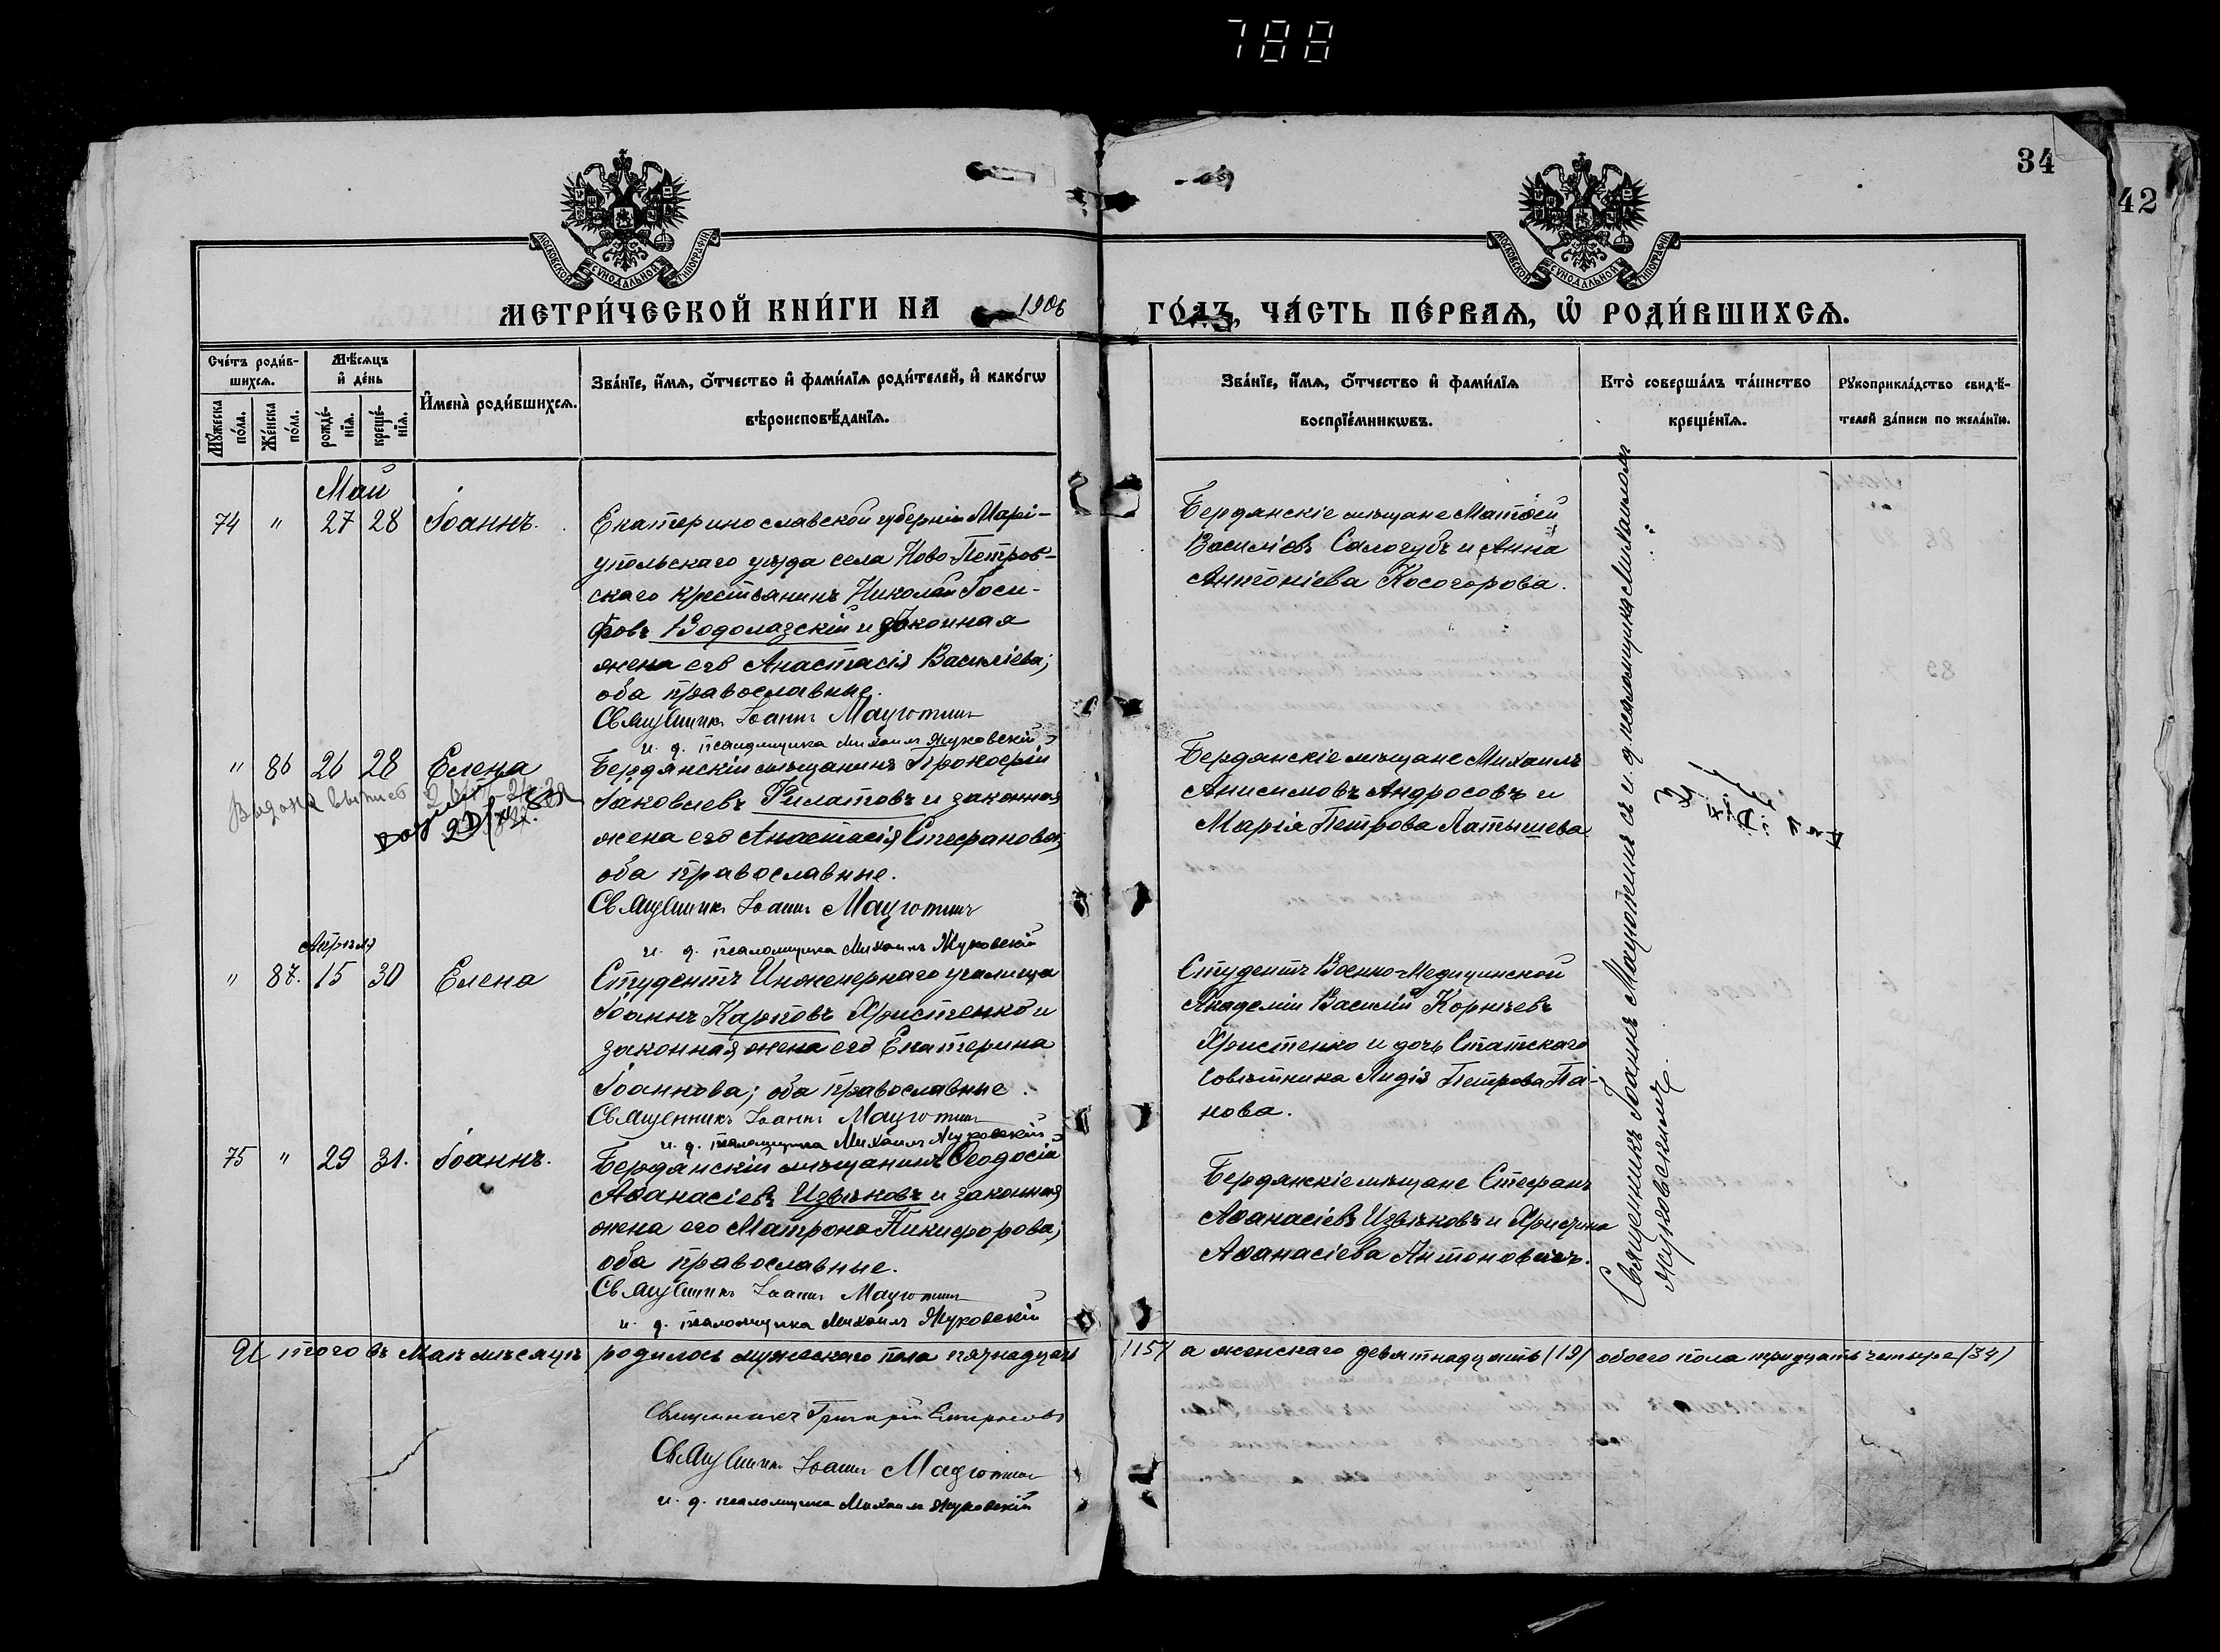 788
34
42
МОСКОВСКОЙ СѴНОДАЛЬНОЙ ТИПОГРАФІИ
МОСКОВСКОЙ СѴНОДАЛЬНОЙ ТИПОГРАФІИ
МЕТРИ́ЧЕСКОЙ КНИ́ГИ НА 1906
ГО́ДЪ, ЧА́СТЬ ПЕ́РВАѦ, Ѡ҆ РОДИ́ВШИХСѦ.
Сче́тъ роди́в-
шихсѧ.
Мꙋ́жеска
по́ла.
Же́нска
по́ла.
Мѣ́сѧцъ
и҆ де́нь
рожде́-
нїѧ.
креще́-
нїѧ.
И҆мена̀ роди́вшихсѧ.
Зва́нїе, и҆́мѧ, ѻ҆́тчество и҆ фами́лїѧ роди́телей, и҆ како́гѡ
вѣроисповѣ́данїѧ.
Зва́нїе, и҆́мѧ, ѻ҆́тчество и҆ фами́лїѧ
воспрїе́мникѡвъ.
Кто̀ соверша́лъ та́инство
креще́нїѧ.
Рꙋкоприкла́дство свидѣ́-
телей за́писи по жела́нїю.
Май
74 " 27 28 Іоаннъ.
Екатеринославской губерніи Марі-
упольскаго уѣзда села Ново-Петров-
скаго крестьянинъ Николай Іоси-
фовъ Водолазскій и законная
жена его Анастасія Василіева;
оба православные.
Священникъ Іоаннъ Мацютинъ
и. д. псаломщика Михаилъ Жуковскій
Бердянскіе мѣщане Матѳей
Василіевъ Сологубъ и Анна
Антоніева Косогорова.
" 86 26 28 Елена
Бердянскій мѣщанинъ Прокофій
Іаковлевъ Филатовъ и законная
жена его Анастасія Стефанова;
оба православные.
Священникъ Іоаннъ Мацютинъ
и. д. псаломщика Михаилъ Жуковскій
Бердянскіе мѣщане Михаилъ
Анисимовъ Андросовъ и
Марія Петрова Латышева
Апрѣль
" 87. 15 30 Елена
Студентъ Инженернаго училища
Іоаннъ Карповъ Христенко и
законная жена его Екатерина
Іоаннова; оба православные.
Священникъ Іоаннъ Мацютинъ
и. д. псаломщика Михаилъ Жуковскій
Студентъ Военно-Медицинской
Академіи Василій Корнѣевъ
Христенко и дочь Статскаго
Совѣтника Лидія Петрова Па-
нова.
75 " 29 31. Іоаннъ.
Бердянскій мѣщанинъ Ѳеодосій
Аѳанасіевъ Извѣковъ и законная
жена его Матрона Никифорова;
оба православные.
Священникъ Іоаннъ Мацютинъ
и. д. псаломщика Михаилъ Жуковскій
Бердянскіе мѣщане Стефанъ
Аѳанасіевъ Извѣковъ и
Аѳанасіева Антоновичъ.
Священникъ Іоаннъ Мацютинъ съ и. д. псаломщика Михаиломъ
Жуковскимъ.
Итого въ Маѣ мѣсяцѣ родилось мужескаго пола пятнадцать /15/ а женскаго девятнадцать /19/ обоего пола тридцать четыре /34/
Священникъ Григорій
Священникъ Іоаннъ Мацютинъ
и. д. псаломщика Михаилъ Жуковскій